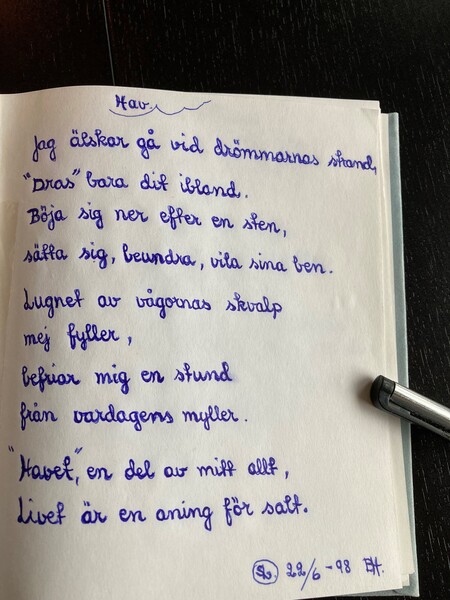 Hav.
Jag älskar gå vid drömmarnas strand,
"Dras" bara dit ibland.
Böja sig ner efter en sten,
sätta sig, beundra, vila sina ben.
Lugnet av vågornas skvalp
mej fyller,
befriar mig en stund
från vardagens myller.
"Havet", en del av mitt allt,
Livet är en aning för salt.
22/6-98 EH.